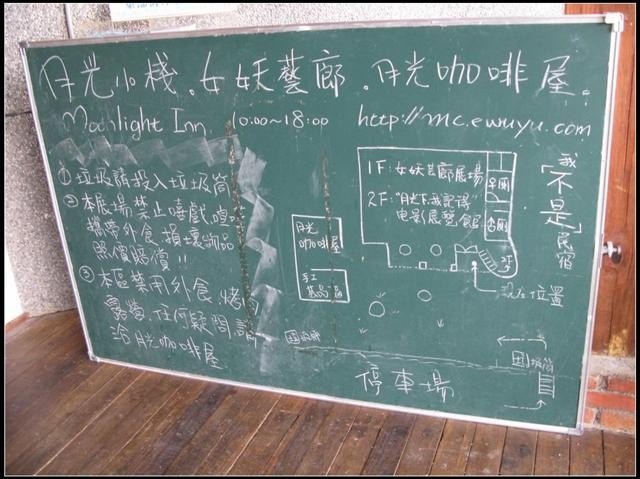 月光小棧.女妖藝廊.月光咖啡屋.
Moonlight Inn 10:00~18:00 http://mc.ewuyu.com
①垃圾請投入垃圾筒
②本展場禁止嘻戲喧嘩
攜帶外食,損壞物品
照價賠償!!
③本區禁用外食、烤肉
露營,任何疑問請
洽月光咖啡屋
月光
咖啡屋
手工
1F:女妖藝廊展場
2F:"月光下我記得"
电影展覽館
我
「不是」
民宿
現在位置
2F
停車場